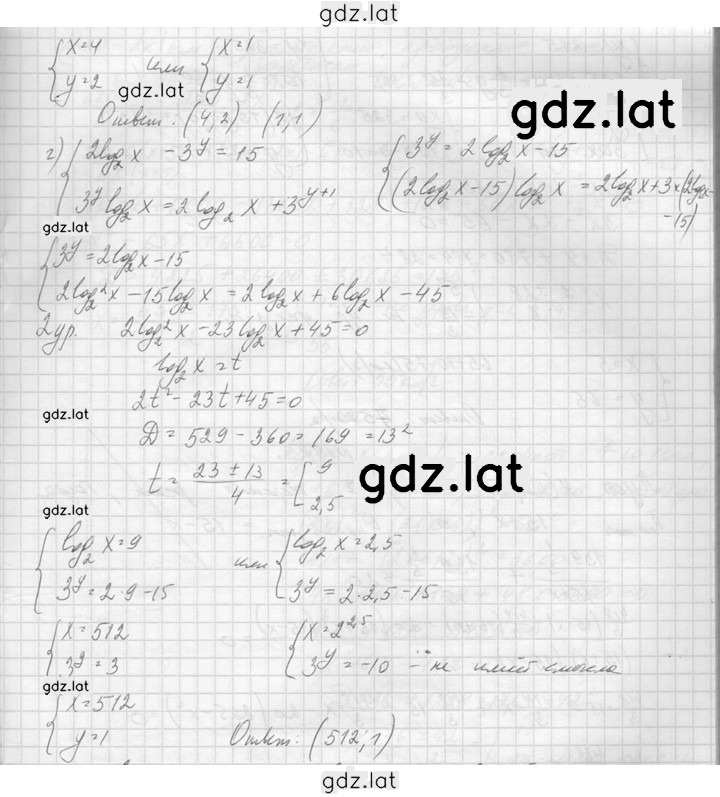 gdz.lat
{x=4 или {x=1
{y=2 {y=1
gdz.lat
gdz.lat
Ответ: (4;2) (1;1)
г) {2log₂x − 3^y = 15 {3^y = 2log₂x−15
{3^y log₂x = 2log₂x + 3^(y+1) {(2log₂x−15)log₂x = 2log₂x+3×(2log₂x−
−15)
gdz.lat
{3^y = 2log₂x−15
{2log₂²x − 15log₂x = 2log₂x + 6log₂x − 45
2 ур. 2log₂²x − 23log₂x + 45 = 0
log₂x = t
2t² − 23t + 45 = 0
gdz.lat
D = 529 − 360 = 169 = 13²
t = (23 ± 13)/4 = [9
[2,5
gdz.lat
gdz.lat
{log₂x = 9 или {log₂x = 2,5
{3^y = 2·9−15 {3^y = 2·2,5−15
{x = 512 {x = 2^2,5
{3^y = 3 {3^y = −10 − не имеет смысла
gdz.lat
{x = 512
{y = 1 Ответ: (512;1)
gdz.lat